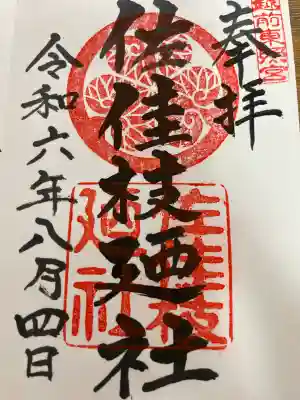 越前東照宮
奉拝
佐佳枝廼社
佐佳枝廼神社
令和六年八月四日